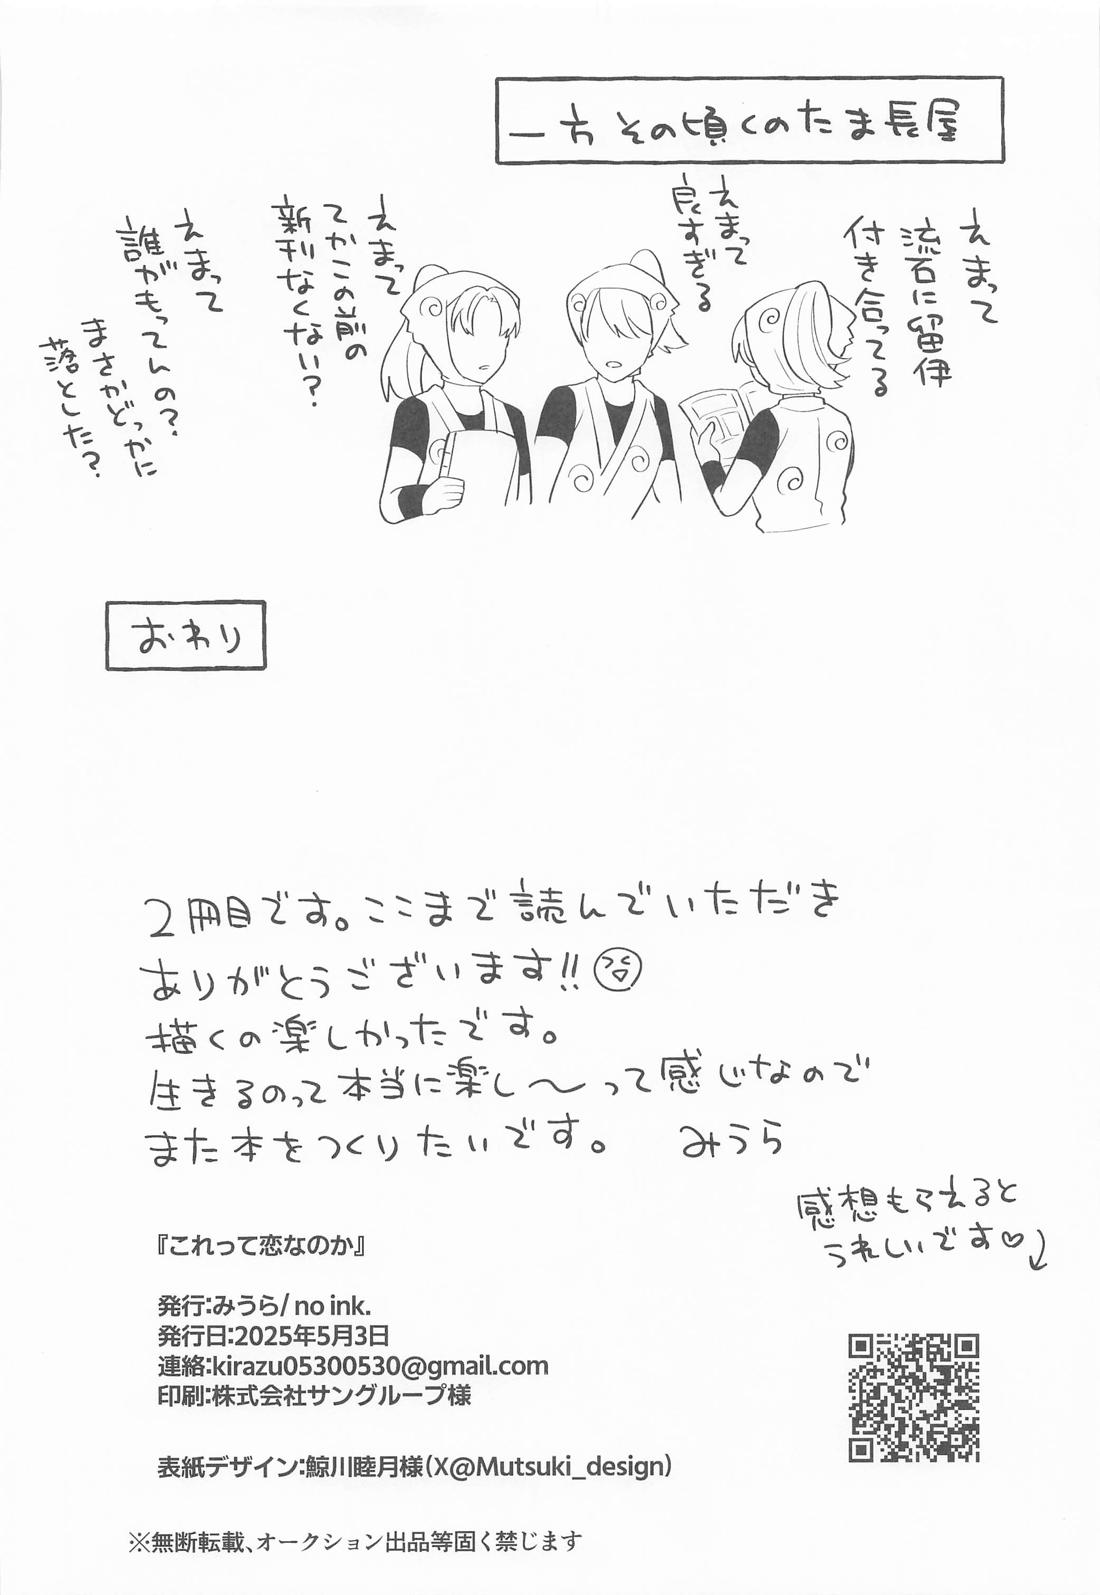 一方その頃くのたま長屋
えまって
流石に留伊
付き合ってる
えまって
良すぎる
えまって
てかこの前の
新刊なくない？
えまって
誰がもってんの？
まさかどっかに
落とした？
おわり
2冊目です。ここまで読んでいただき
ありがとうございます!!
描くの楽しかったです。
生きるのって本当に楽し〜って感じなので
また本をつくりたいです。 みうら
感想もらえると
うれしいです♡
『これって恋なのか』
発行:みうら/ no ink.
発行日:2025年5月3日
連絡:kirazu05300530@gmail.com
印刷:株式会社サングループ様
表紙デザイン:鯨川睦月様(X@Mutsuki_design)
※無断転載、オークション出品等固く禁じます